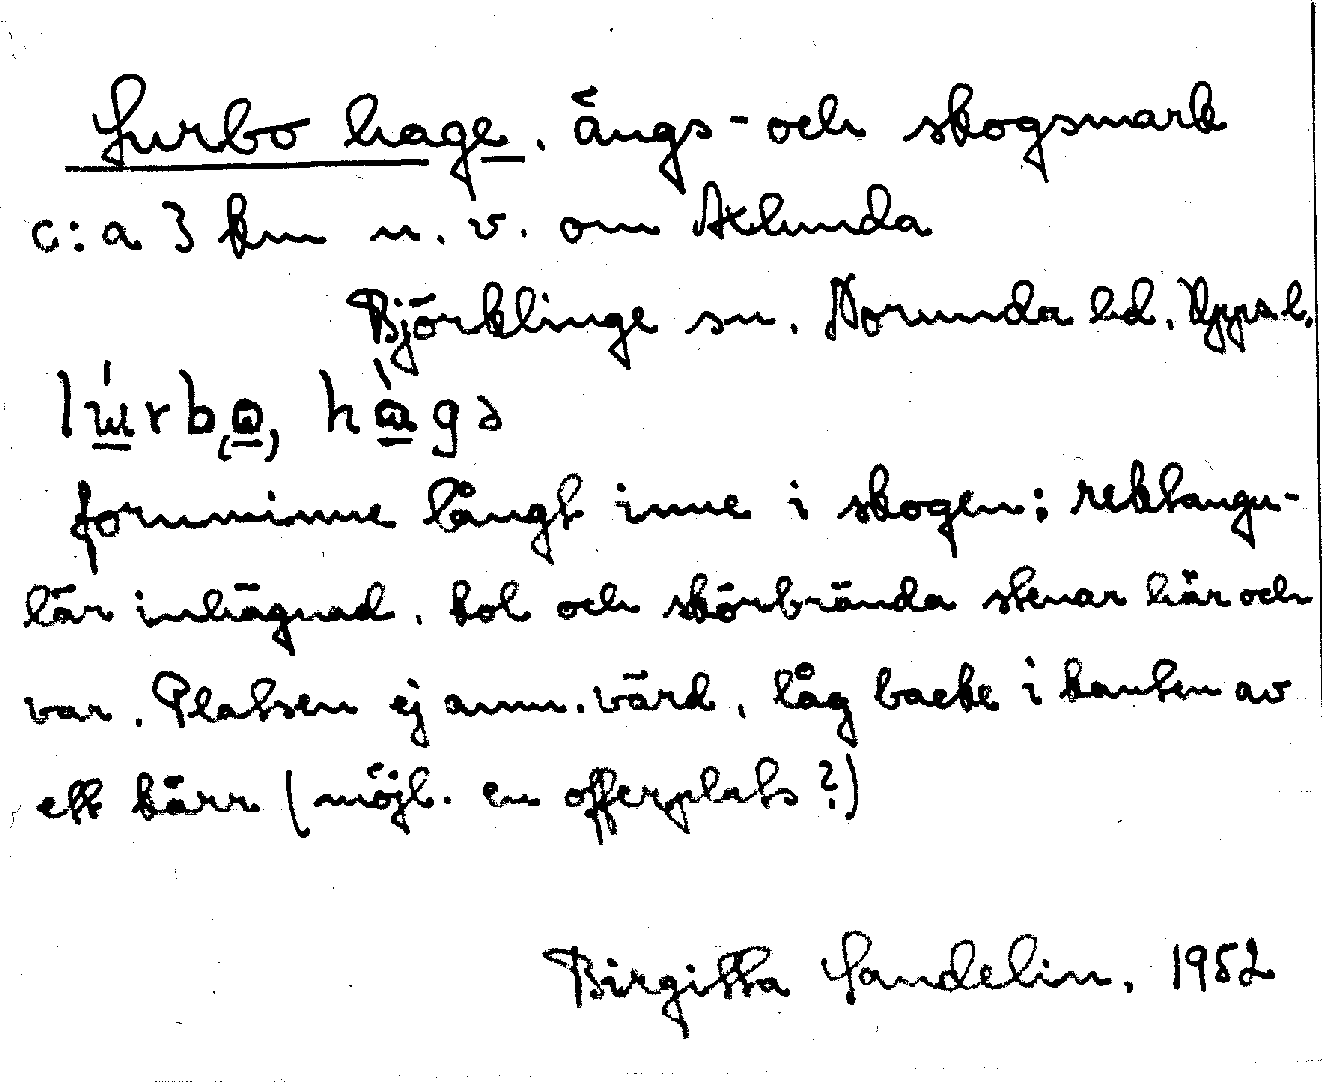 Lurbo hage, ängs- och skogsmark
c:a 3 km n.v. om Axlunda
Björklinge sn. Norunda hd. Uppsl.
lúrb(o) hàgə
fornminne långt inne i skogen; rektangu-
lär inhägnad, kol och skörbrända stenar här och
var. Platsen ej anm. värd, låg backe i kanten av
ett kärr (möjl. en offerplats?)
Birgitta Sandelin, 1952